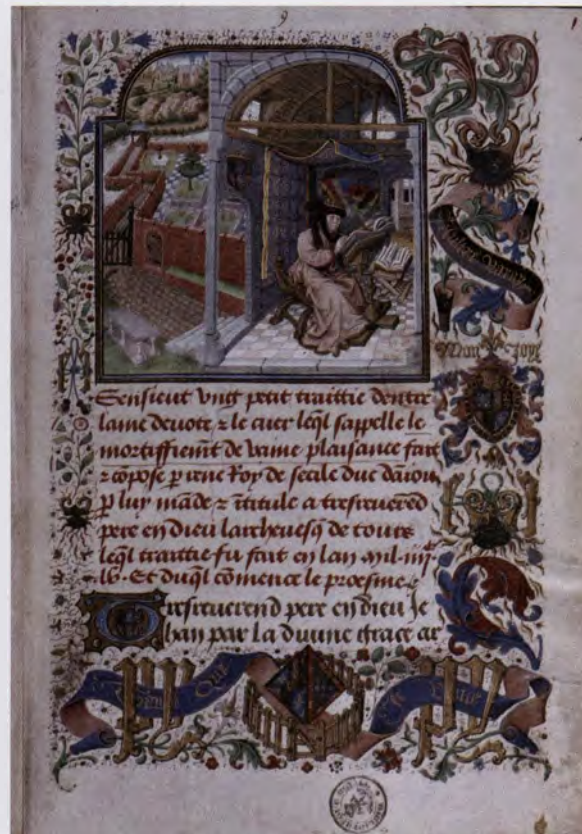 9
Sensieut vng petit traittie dentre
lame deuote ⁊ le cuer leq̄l sappelle le
mortiffiem̄t de vaine plaisance fait
⁊ cōpose ꝑ rene Roy de secile duc daniou
ꝑ luy māde ⁊ ītitule a tresreuerēd
pere en dieu larcheuesq̄ de tours
leq̄l traittie fu fait en lan mil iiijᶜ
lv. Et duq̄l cōmence le proesme
Tresreuerend pere en dieu Je
han par la diuine grace ar